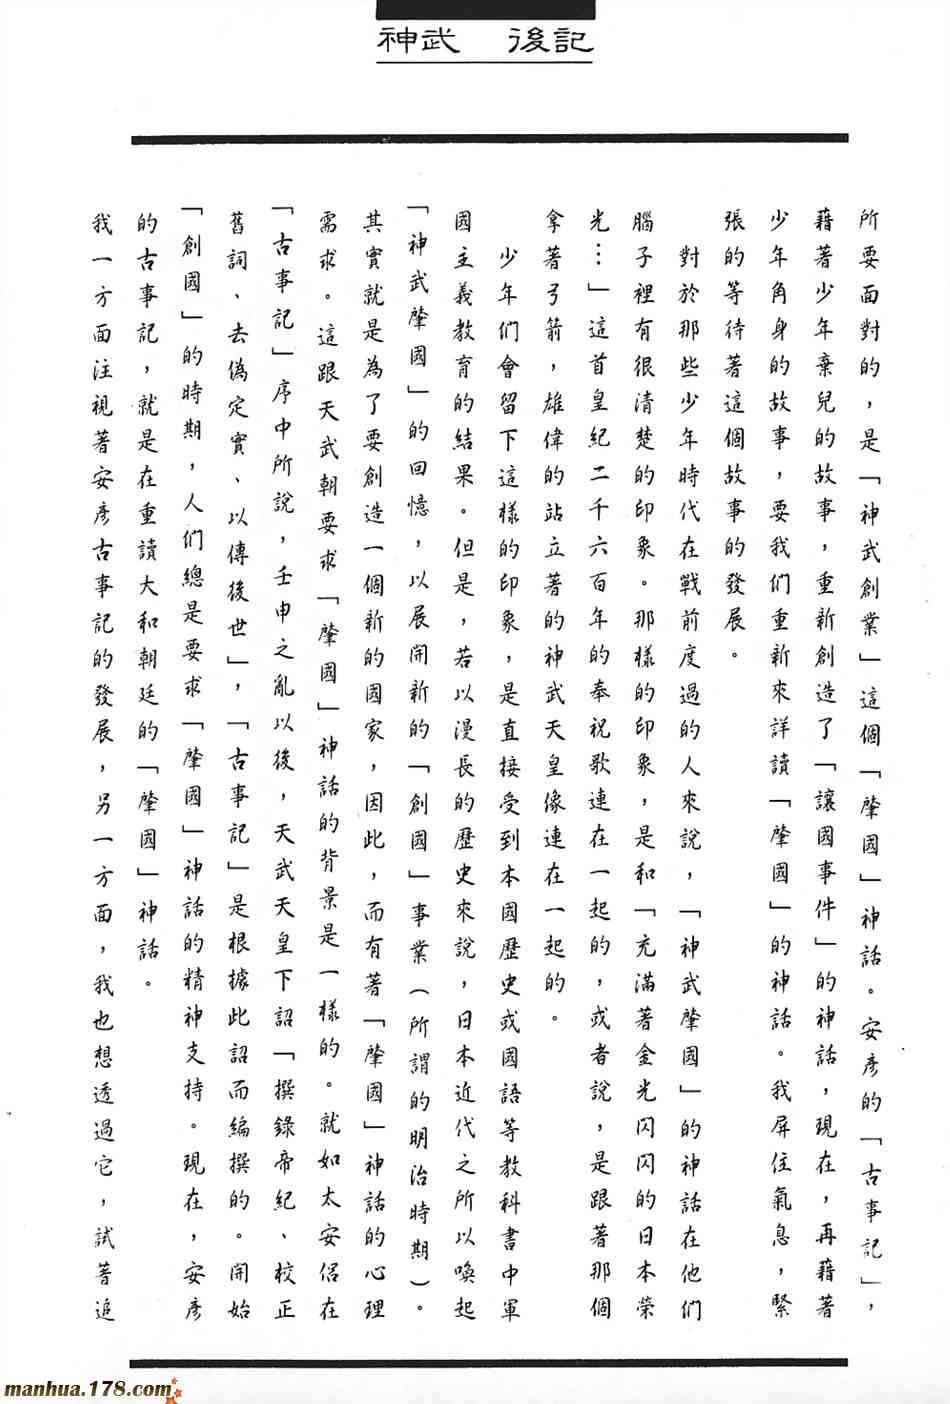 神武　後記
所要面對的，是「神武創業」這個「肇國」神話。安彥的「古事記」，
藉著少年棄兒的故事，重新創造了「讓國事件」的神話，現在，再藉著
少年角身的故事，要我們重新來詳讀「肇國」的神話。我屏住氣息，緊
張的等待著這個故事的發展。
對於那些少年時代在戰前度過的人來說，「神武肇國」的神話在他們
腦子裡有很清楚的印象。那樣的印象，是和「充滿著金光閃閃的日本榮
光…」這首皇紀二千六百年的奉祝歌連在一起的，或者說，是跟著那個
拿著弓箭，雄偉的站立著的神武天皇像連在一起的。
少年們會留下這樣的印象，是直接受到本國歷史或國語等教科書中軍
國主義教育的結果。但是，若以漫長的歷史來說，日本近代之所以喚起
「神武肇國」的回憶，以展開新的「創國」事業（所謂的明治時期）。
其實就是為了要創造一個新的國家，因此，而有著「肇國」神話的心理
需求。這跟天武朝要求「肇國」神話的背景是一樣的。就如太安侶在
「古事記」序中所說，壬申之亂以後，天武天皇下詔「撰錄帝紀、校正
舊詞、去偽定實、以傳後世」，「古事記」是根據此詔而編撰的。開始
「創國」的時期，人們總是要求「肇國」神話的精神支持。現在，安彥
的古事記，就是在重讀大和朝廷的「肇國」神話。
我一方面注視著安彥古事記的發展，另一方面，我也想透過它，試著追
manhua.178.com